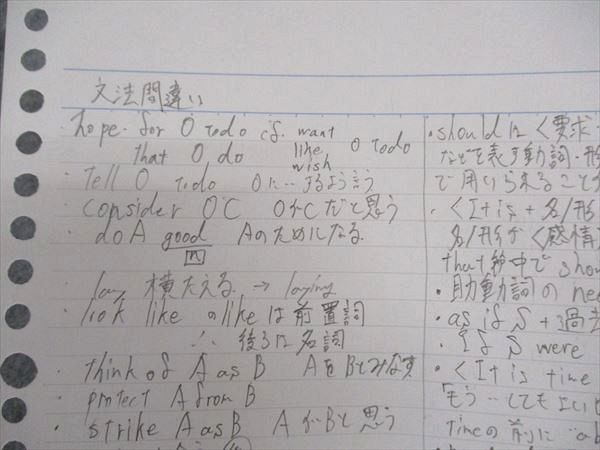 文法間違い
・hope for O to do cf. want
that O do like O to do
wish
・tell O to do Oに…するよう言う
・consider O C OがCだと思う
・do A good Aのためになる
名
・lay 横たえる → laying
・look like のlikeは前置詞
∴ 後ろは名詞
・think of A as B AをBとみなす
・protect A from B
・strike A as B AがBと思う
・shouldは<要求
などを表す動詞・形
で用いられること
・<It is + 名/形
名/形が<感情
that節中でshou
・助動詞のnee
・as if S + 過去
・If S were
・<It is time
「もう…してもよい
timeの前に"ab